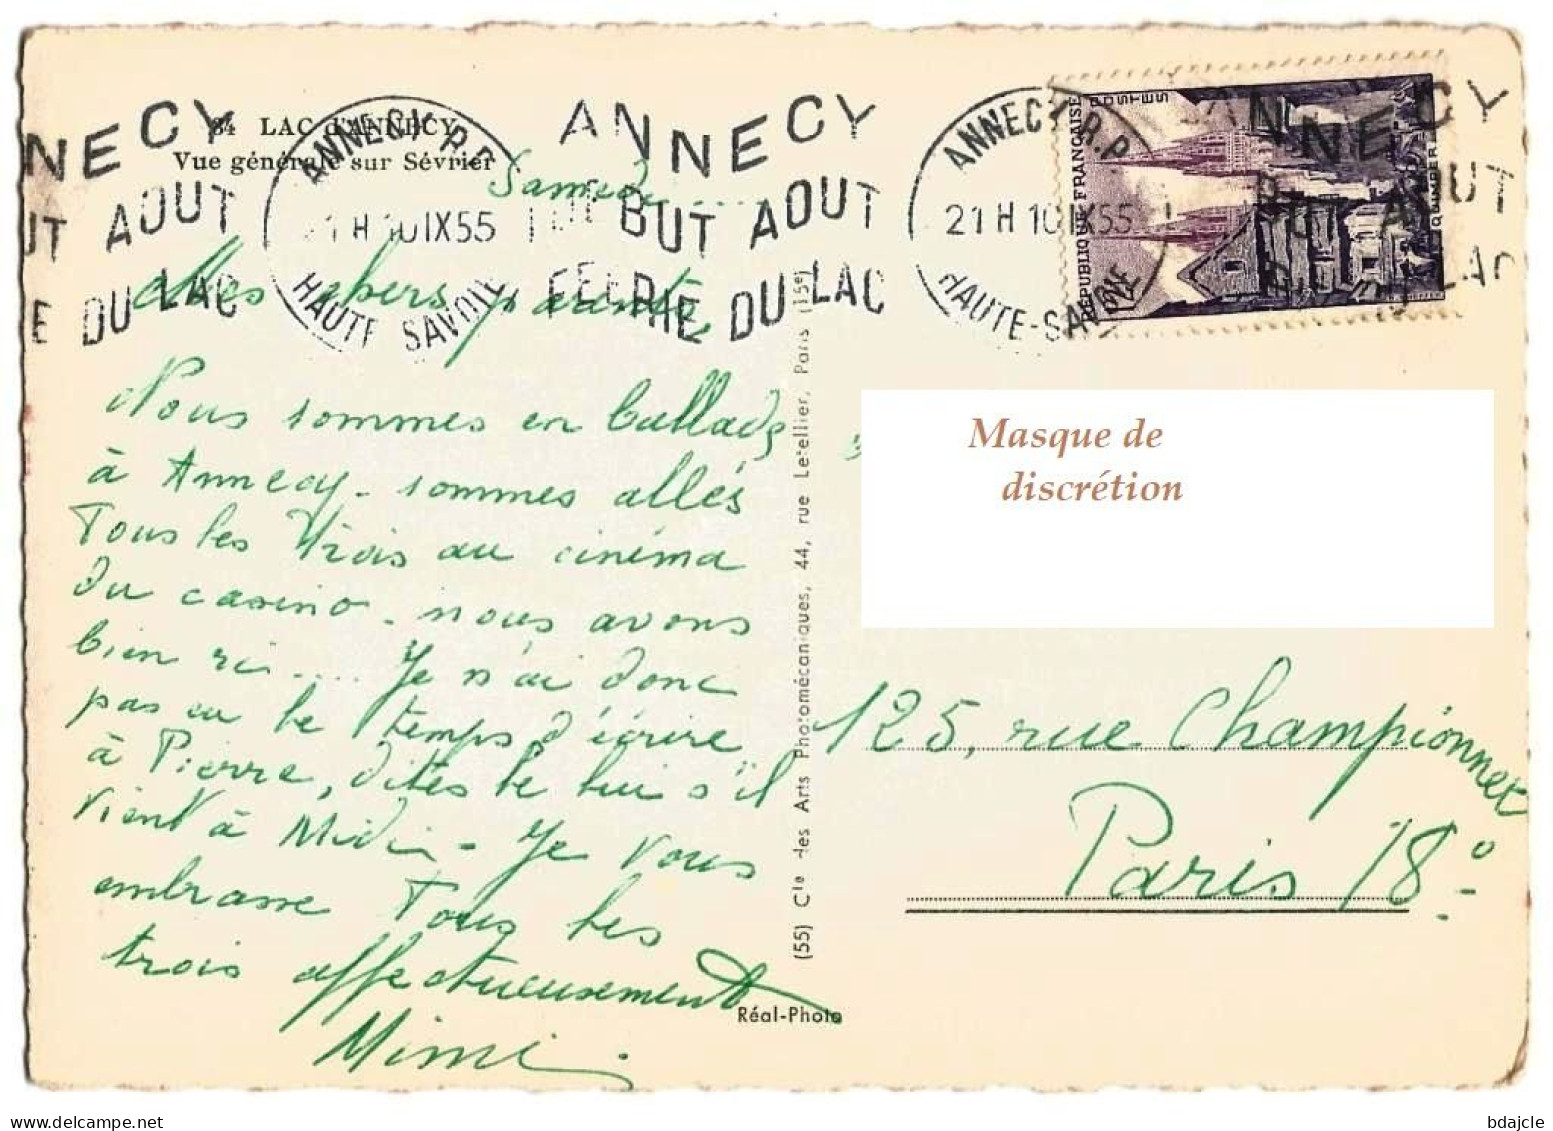 84 LAC d'ANNECY
Vue générale sur Sévrier
ANNECY
BUT AOUT
FEERIE DU LAC
ANNECY R.P.
21H 10 IX 55
HAUTE-SAVOIE
NNECY
UT AOUT
E DU LAC
ANNECY R.P.
21H 10 IX 55
HAUTE-SAVOIE
ANNECY
BUT AOUT
LAC
RÉPUBLIQUE FRANÇAISE
POSTES
QUIMPER
Samedi ....
Mes chers parents,
Nous sommes en ballade
à Annecy - sommes allés
Tous les trois au cinéma
du casino - nous avons
bien ri .... Je n'ai donc
pas eu le temps d'écrire
à Pierre, dites le lui s'il
vient à Midi - Je vous
embrasse Tous les
trois affectueusement
Mimi.
(55) Cie des Arts Photomécaniques, 44, rue Letellier, Paris (15e)
Réal-Photo
Masque de
discrétion
125, rue Championnet
Paris 18°
www.delcampe.net
bdajcle